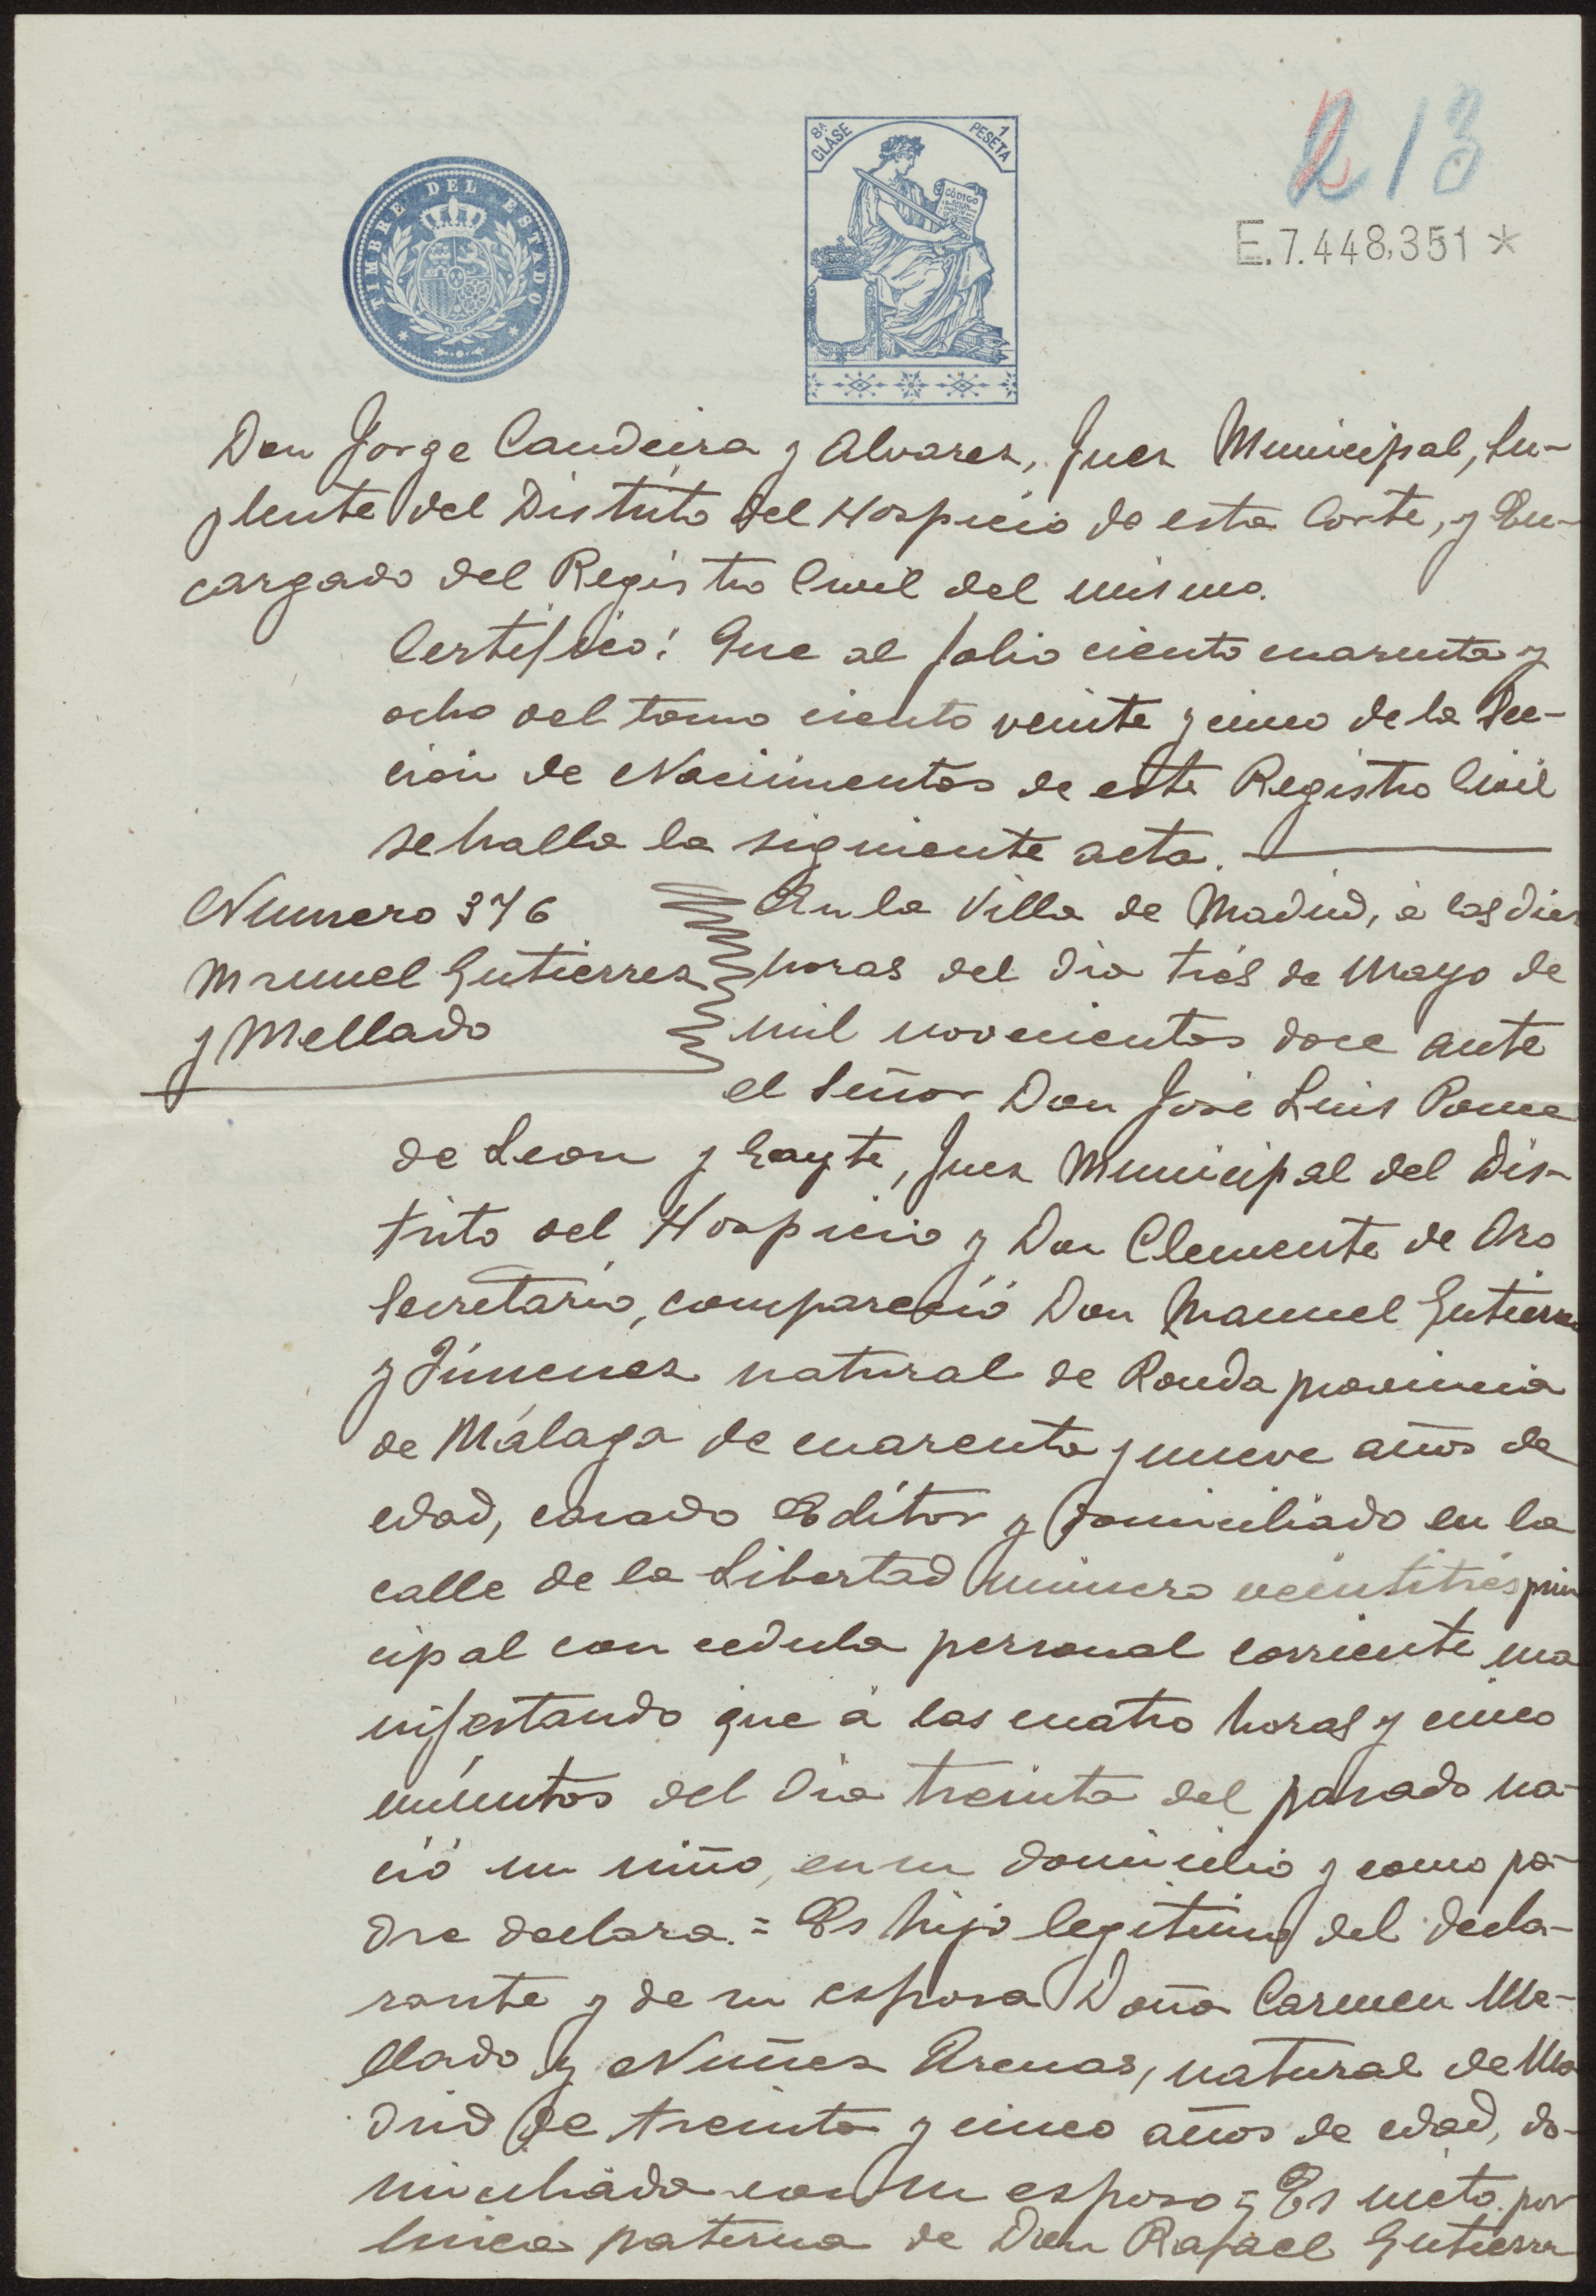 213
TIMBRE DEL ESTADO
8ª CLASE
1 PESETA
CÓDIGO
E.7.448,351*
Don Jorge Candeira y Alvarez, Juez Municipal, Su-
plente del Distrito del Hospicio de esta Corte, y En-
cargado del Registro Civil del mismo.
Certifico: Que al folio ciento cuarenta y
ocho del tomo ciento veinte y cinco de la Sec-
cion de Nacimientos de este Registro Civil
se halla la siguiente acta.
Numero 376
Manuel Gutierrez
y Mellado
En la Villa de Madrid, à las diez
horas del dia trés de Mayo de
mil novecientos doce ante
el Señor Don José Luis Ponce
de Leon y Gayte, Juez Municipal del Dis-
trito del Hospicio y Don Clemente de Oro
Secretario, compareció Don Manuel Gutierrez
y Jimenez natural de Ronda provincia
de Málaga de cuarenta y nueve años de
edad, casado Editor y domiciliado en la
calle de la Libertad número veintitrés prin
cipal con cedula personal corriente ma
nifestando que à las cuatro horas y cinco
minutos del dia treinta del pasado na-
ció un niño, en su domicilio y como pa-
dre declara.= Es hijo legitimo del decla-
rante y de su esposa Doña Carmen Me-
llado y Nuñez Arenas, natural de Ma
drid de treinta y cinco años de edad, do-
miciliada con su esposo = Es nieto por
linea paterna de Don Rafael Gutierrez